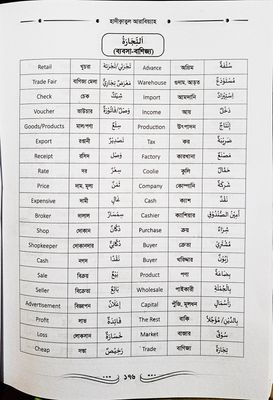 হাদীক্বাতুল আরাবিয়্যাহ
اَلتِّجَارَةُ
(ব্যবসা-বাণিজ্য)
Retail খুচরা تِجْزِئِيٌّ/تَجْزِئَة Advance অগ্রিম سُلْفَةٌ
Trade Fair বাণিজ্য মেলা مَعْرَضٌ تِجَارِيٌّ Warehouse গুদাম, আড়ত مُسْتَوْدَعٌ
Check চেক شِيْكٌ Import আমদানি اِسْتِيْرَادٌ
Voucher ভাউচার وَصْلٌ/فَاتُوْرَةٌ Income আয় دَخْلٌ
Goods/Products মাল/পণ্য سِلَعٌ Production উৎপাদন إِنْتَاجٌ
Export রপ্তানী تَصْدِيْرٌ Tax কর ضَرِيْبَةٌ
Receipt রসিদ وَصْلٌ Factory কারখানা مَصْنَعٌ
Rate দর سِعْرٌ Coolie কুলি حَمَّالٌ
Price দাম, মূল্য ثَمَنٌ Company কোম্পানি شَرِكَةٌ
Expensive দামী غَالٍ Cash ক্যাশ نَقْدٌ
Broker দালাল سِمْسَارٌ Cashier ক্যাশিয়ার أَمِيْنُ الصُّنْدُوْقِ
Shop দোকান دُكَّانٌ Purchase ক্রয় شِرَاءٌ
Shopkeeper দোকানদার دُكَّانِيٌّ Buyer ক্রেতা مُشْتَرِيْ
Cash নগদ نَقْدٌ Buyer খরিদ্দার زَبُوْنٌ
Sale বিক্রয় بَيْعٌ Product পণ্য بِضَاعَةٌ
Seller বিক্রেতা بَائِعٌ Wholesale পাইকারী جُمْلَةٌ
Advertisement বিজ্ঞাপন إِعْلَانٌ Capital পুঁজি, মূলধন رَأْسُمَالٍ
Profit লাভ فَائِدَةٌ The Rest বাকি بِالدَّيْنِ/ مُؤَجَّلًا
Loss লোকসান خَسَارَةٌ Market বাজার سُوْقٌ
Cheap সস্তা رَخِيْصٌ Trade বাণিজ্য تِجَارَةٌ
১৭৬